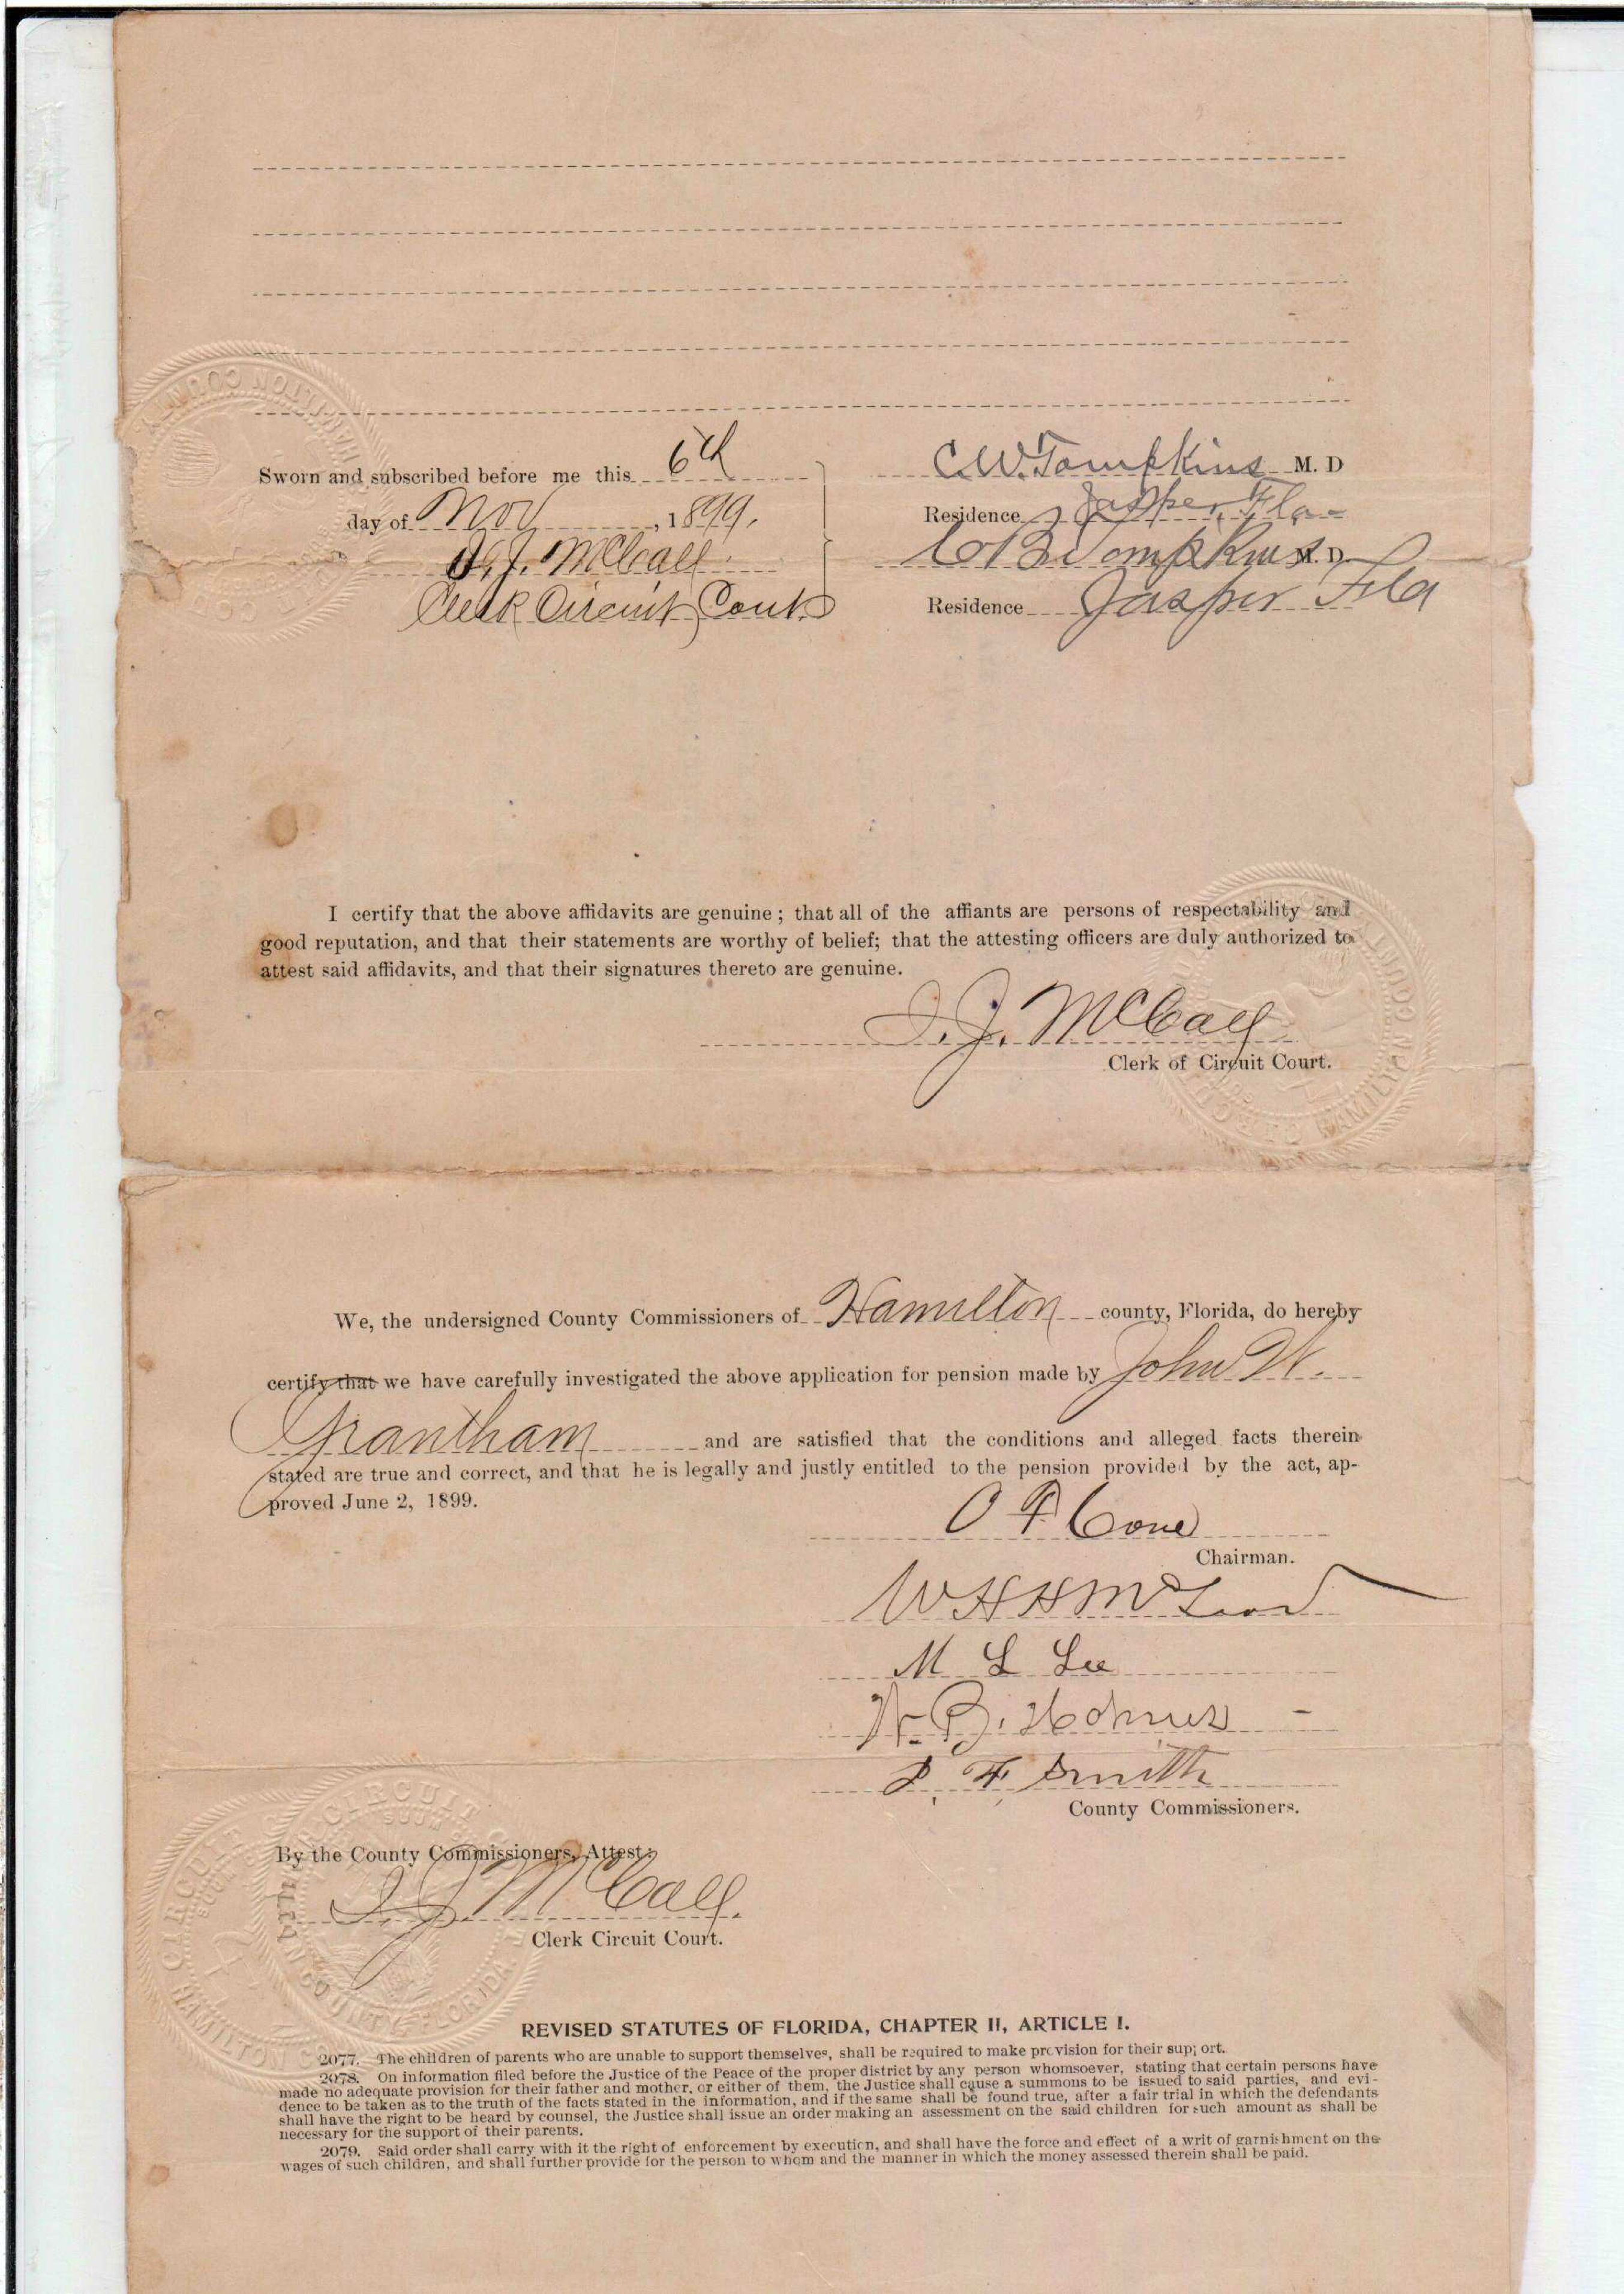 HAMILTON COUNTY
Sworn and subscribed before me this 6th
day of Nov, 1899.
J. McCall
Clerk Circuit Court
C.W. Tompkins M. D
Residence Jasper, Fla-
Tompkins M. D.
Residence Jasper Fla
I certify that the above affidavits are genuine; that all of the affiants are persons of respectability and
good reputation, and that their statements are worthy of belief; that the attesting officers are duly authorized to
attest said affidavits, and that their signatures thereto are genuine.
J. McCall
Clerk of Circuit Court.
HAMILTON COUNTY
We, the undersigned County Commissioners of Hamilton county, Florida, do hereby
certify that we have carefully investigated the above application for pension made by John W.
Grantham and are satisfied that the conditions and alleged facts therein
stated are true and correct, and that he is legally and justly entitled to the pension provided by the act, ap-
proved June 2, 1899.
Cone
Chairman.
W H H McLeod
M L Lee
B. Holmes
F. Smith
County Commissioners.
By the County Commissioners, Attest:
J McCall.
Clerk Circuit Court.
CIRCUIT
HAMILTON
CIRCUIT
COUNTY, FLORIDA
REVISED STATUTES OF FLORIDA, CHAPTER II, ARTICLE I.
2077. The children of parents who are unable to support themselves, shall be required to make provision for their sup; ort.
2078. On information filed before the Justice of the Peace of the proper district by any person whomsoever, stating that certain persons have
made no adequate provision for their father and mother, or either of them, the Justice shall cause a summons to be issued to said parties, and evi-
dence to be taken as to the truth of the facts stated in the information, and if the same shall be found true, after a fair trial in which the defendants
shall have the right to be heard by counsel, the Justice shall issue an order making an assessment on the said children for such amount as shall be
necessary for the support of their parents.
2079. Said order shall carry with it the right of enforcement by execution, and shall have the force and effect of a writ of garnishment on the
wages of such children, and shall further provide for the person to whom and the manner in which the money assessed therein shall be paid.